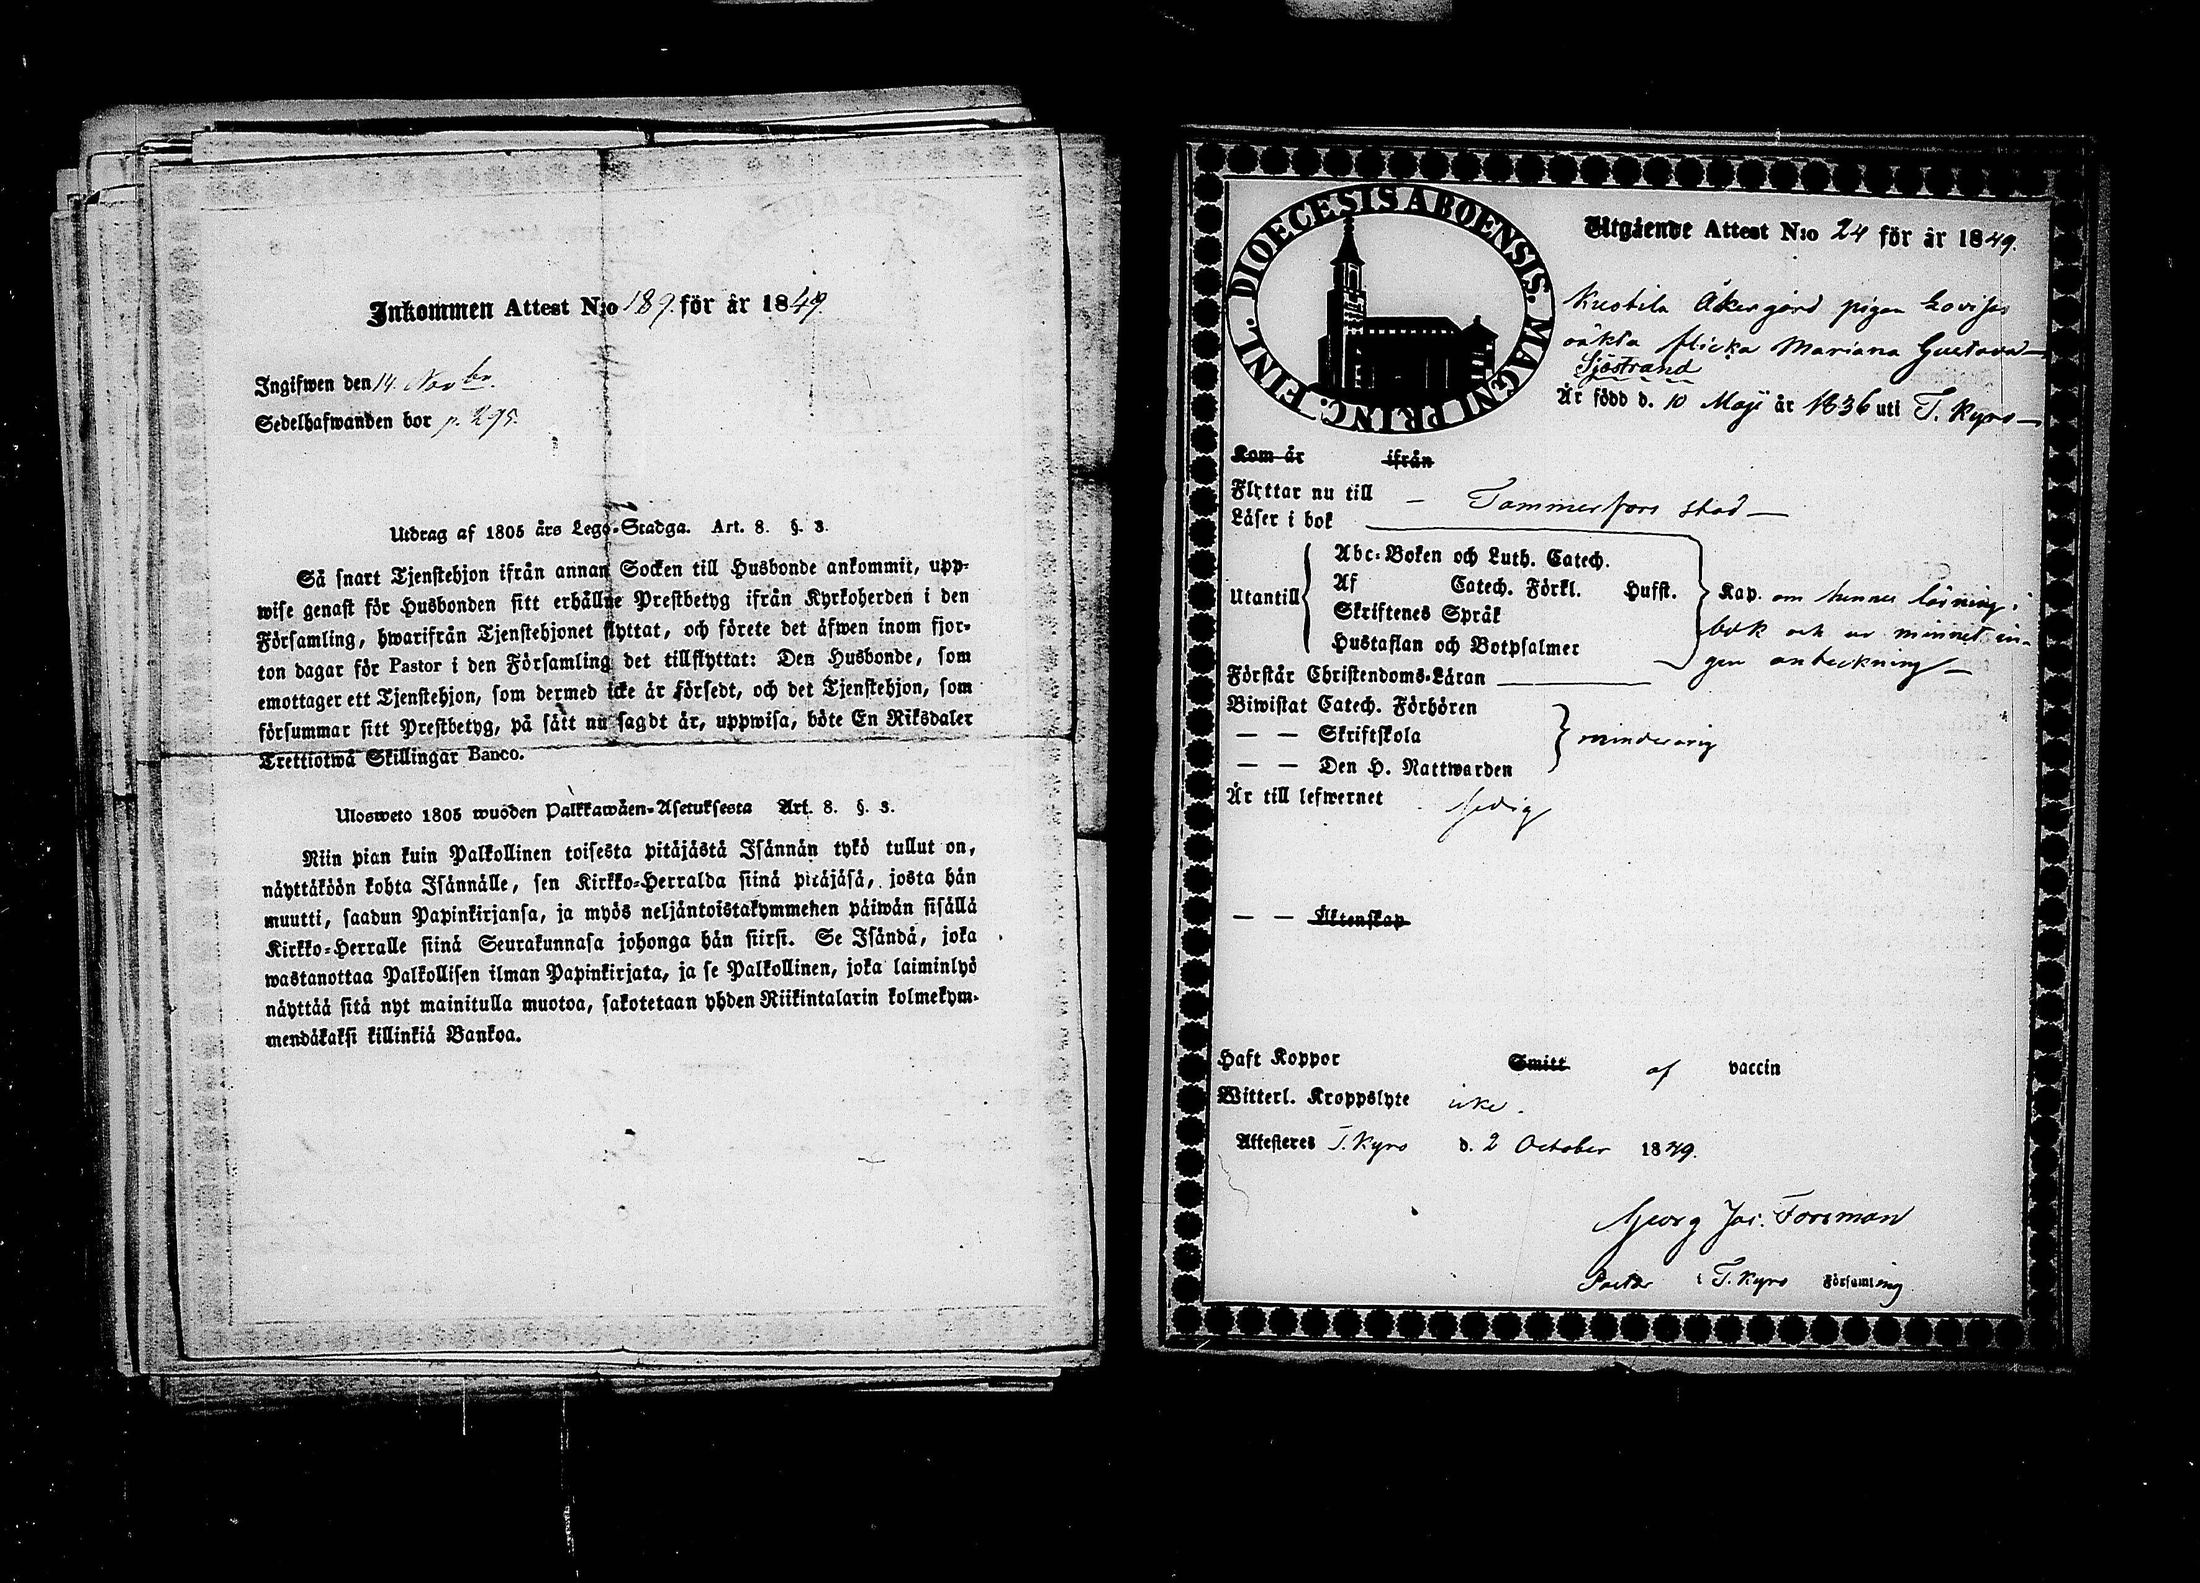 Inkommen Attest N:o 189. för år 1849.
Ingifwen den 14. Novbr.
Sedelhafwanden bor p. 295.
Utdrag af 1805 års Lego-Stadga. Art. 8. §. 3.
Så snart Tjenstehjon ifrån annan Socken till Husbonde ankommit, upp-
wise genast för Husbonden sitt erhållne Prestbetyg ifrån Kyrkoherden i den
Församling, hwarifrån Tjenstehjonet flyttat, och förete det äfwen inom fjor-
ton dagar för Pastor i den Församling det tillflyttat: Den Husbonde, som
emottager ett Tjenstehjon, som dermed icke är försedt, och det Tjenstehjon, som
försummar sitt Prestbetyg, på sätt nu sagdt är, uppwisa, böte En Riksdaler
Trettiotwå Skillingar Banco.
Ulosweto 1805 wuoden Palkkawäen-Asetuksesta Art. 8. §. 3.
Niin pian kuin Palkollinen toisesta pitäjästä Isännän tykö tullut on,
näyttäköön kohta Isännälle, sen Kirkko-Herralda siinä pitäjäsä, josta hän
muutti, saadun Papinkirjansa, ja myös neljäntoistakymmehen päiwän sisällä
Kirkko-Herralle siinä Seurakunnasa johonga hän siirsi. Se Isändä, joka
wastanottaa Palkollisen ilman Papinkirjata, ja se Palkollinen, joka laiminlyö
näyttää sitä nyt mainitulla muotoa, sakotetaan yhden Riikintalarin kolmekym-
mendäkaksi killinkiä Bankoa.
DIOECESIS ABOENSIS. MAGNI PRINC. FINL.
Utgående Attest N:o 24 för år 1849.
Kustila Åkergård pigan Lovisas
oäkta flicka Mariana Gustava
Sjöstrand
Är född d. 10 Maji år 1836 uti T. Kyro
Kom år ifrån
Flyttar nu till Tammerfors stad
Läser i bok
Utantill
Abc-Boken och Luth. Catech.
Af Catech. Förkl. Husst.
Skriftenes Språk
Hustaflan och Botpsalmer
Kap. om hennes läsning i
bok och ur minnet in-
gen anteckning
Förstår Christendoms-Läran
Biwistat Catech. Förhören
— — Skriftskola
— — Den H. Nattwarden
minderårig
Är till lefwernet ledig
— — Äktenskap
Haft Koppor Smitt af vaccin
Witterl. Kroppslyte icke.
Attesteres T. Kyro d. 2 October 1849.
Georg Jac. Forsman
Pastor i T. Kyro Församling